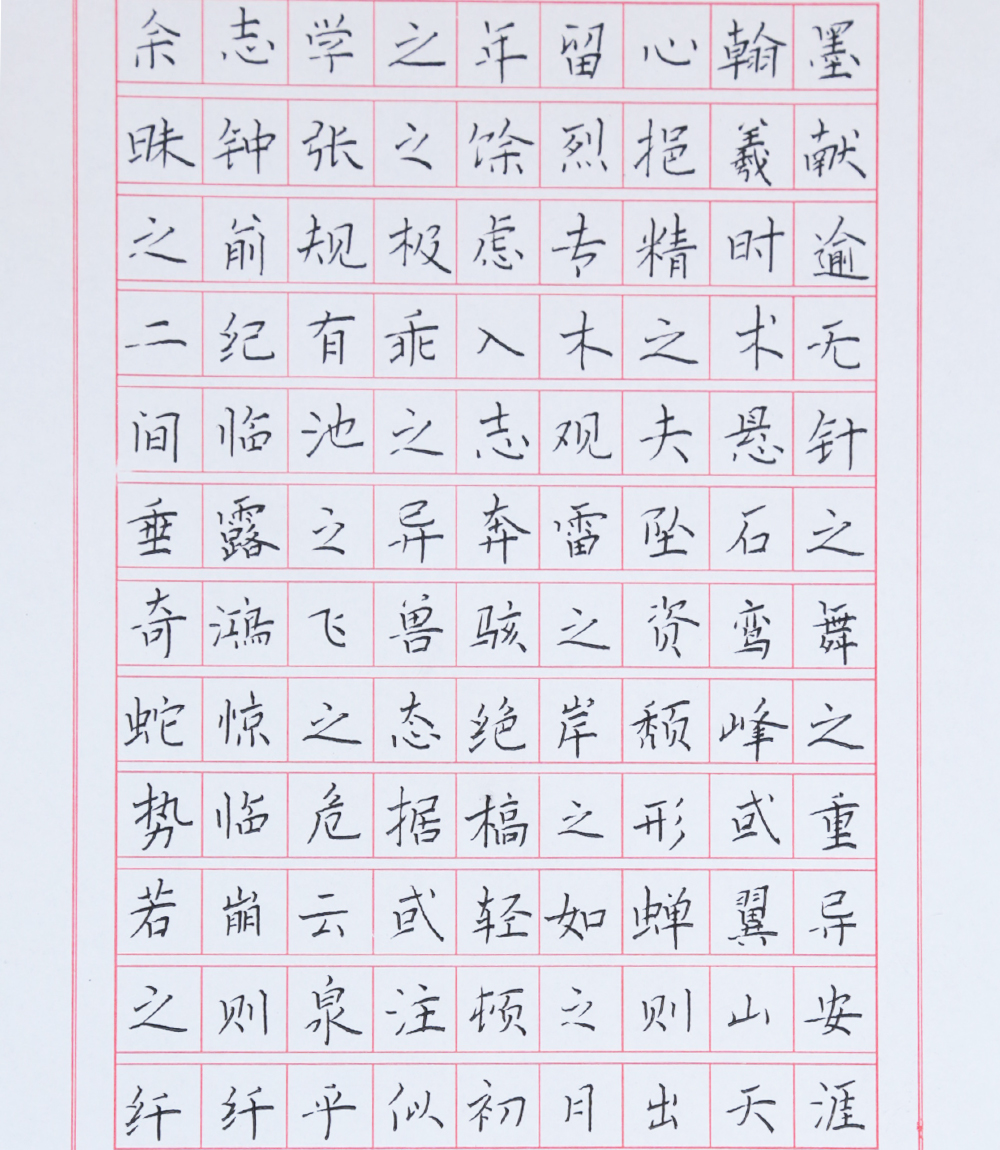 余志学之年留心翰墨
昧钟张之馀烈挹羲献
之前规极虑专精时逾
二纪有乖入木之术无
间临池之志观夫悬针
垂露之异奔雷坠石之
奇鸿飞兽骇之资鸾舞
蛇惊之态绝岸颓峰之
势临危据槁之形或重
若崩云或轻如蝉翼导
之则泉注顿之则山安
纤纤乎似初月出天涯